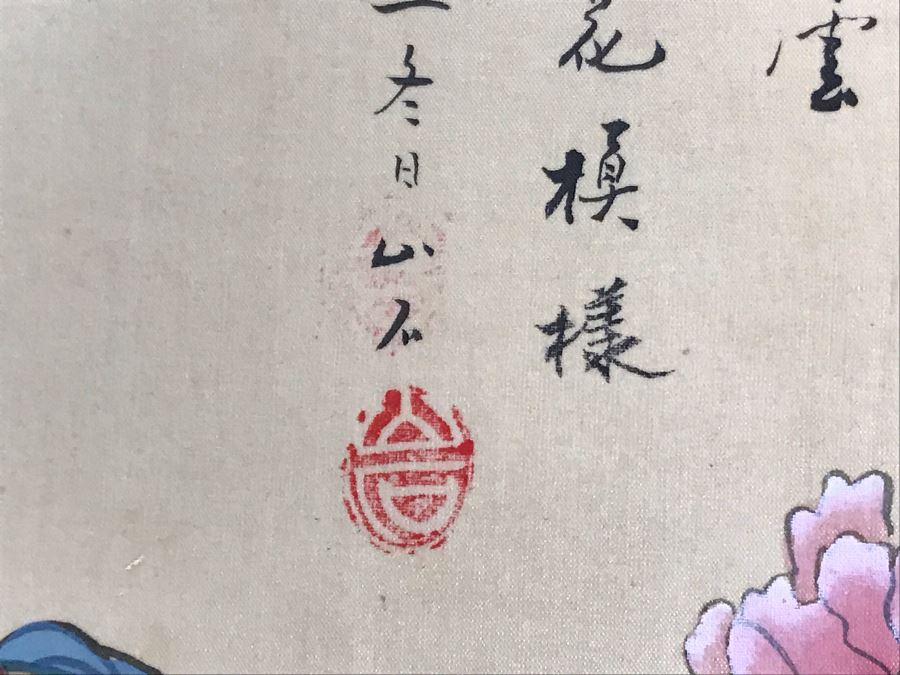 雲
花模樣
冬日山石